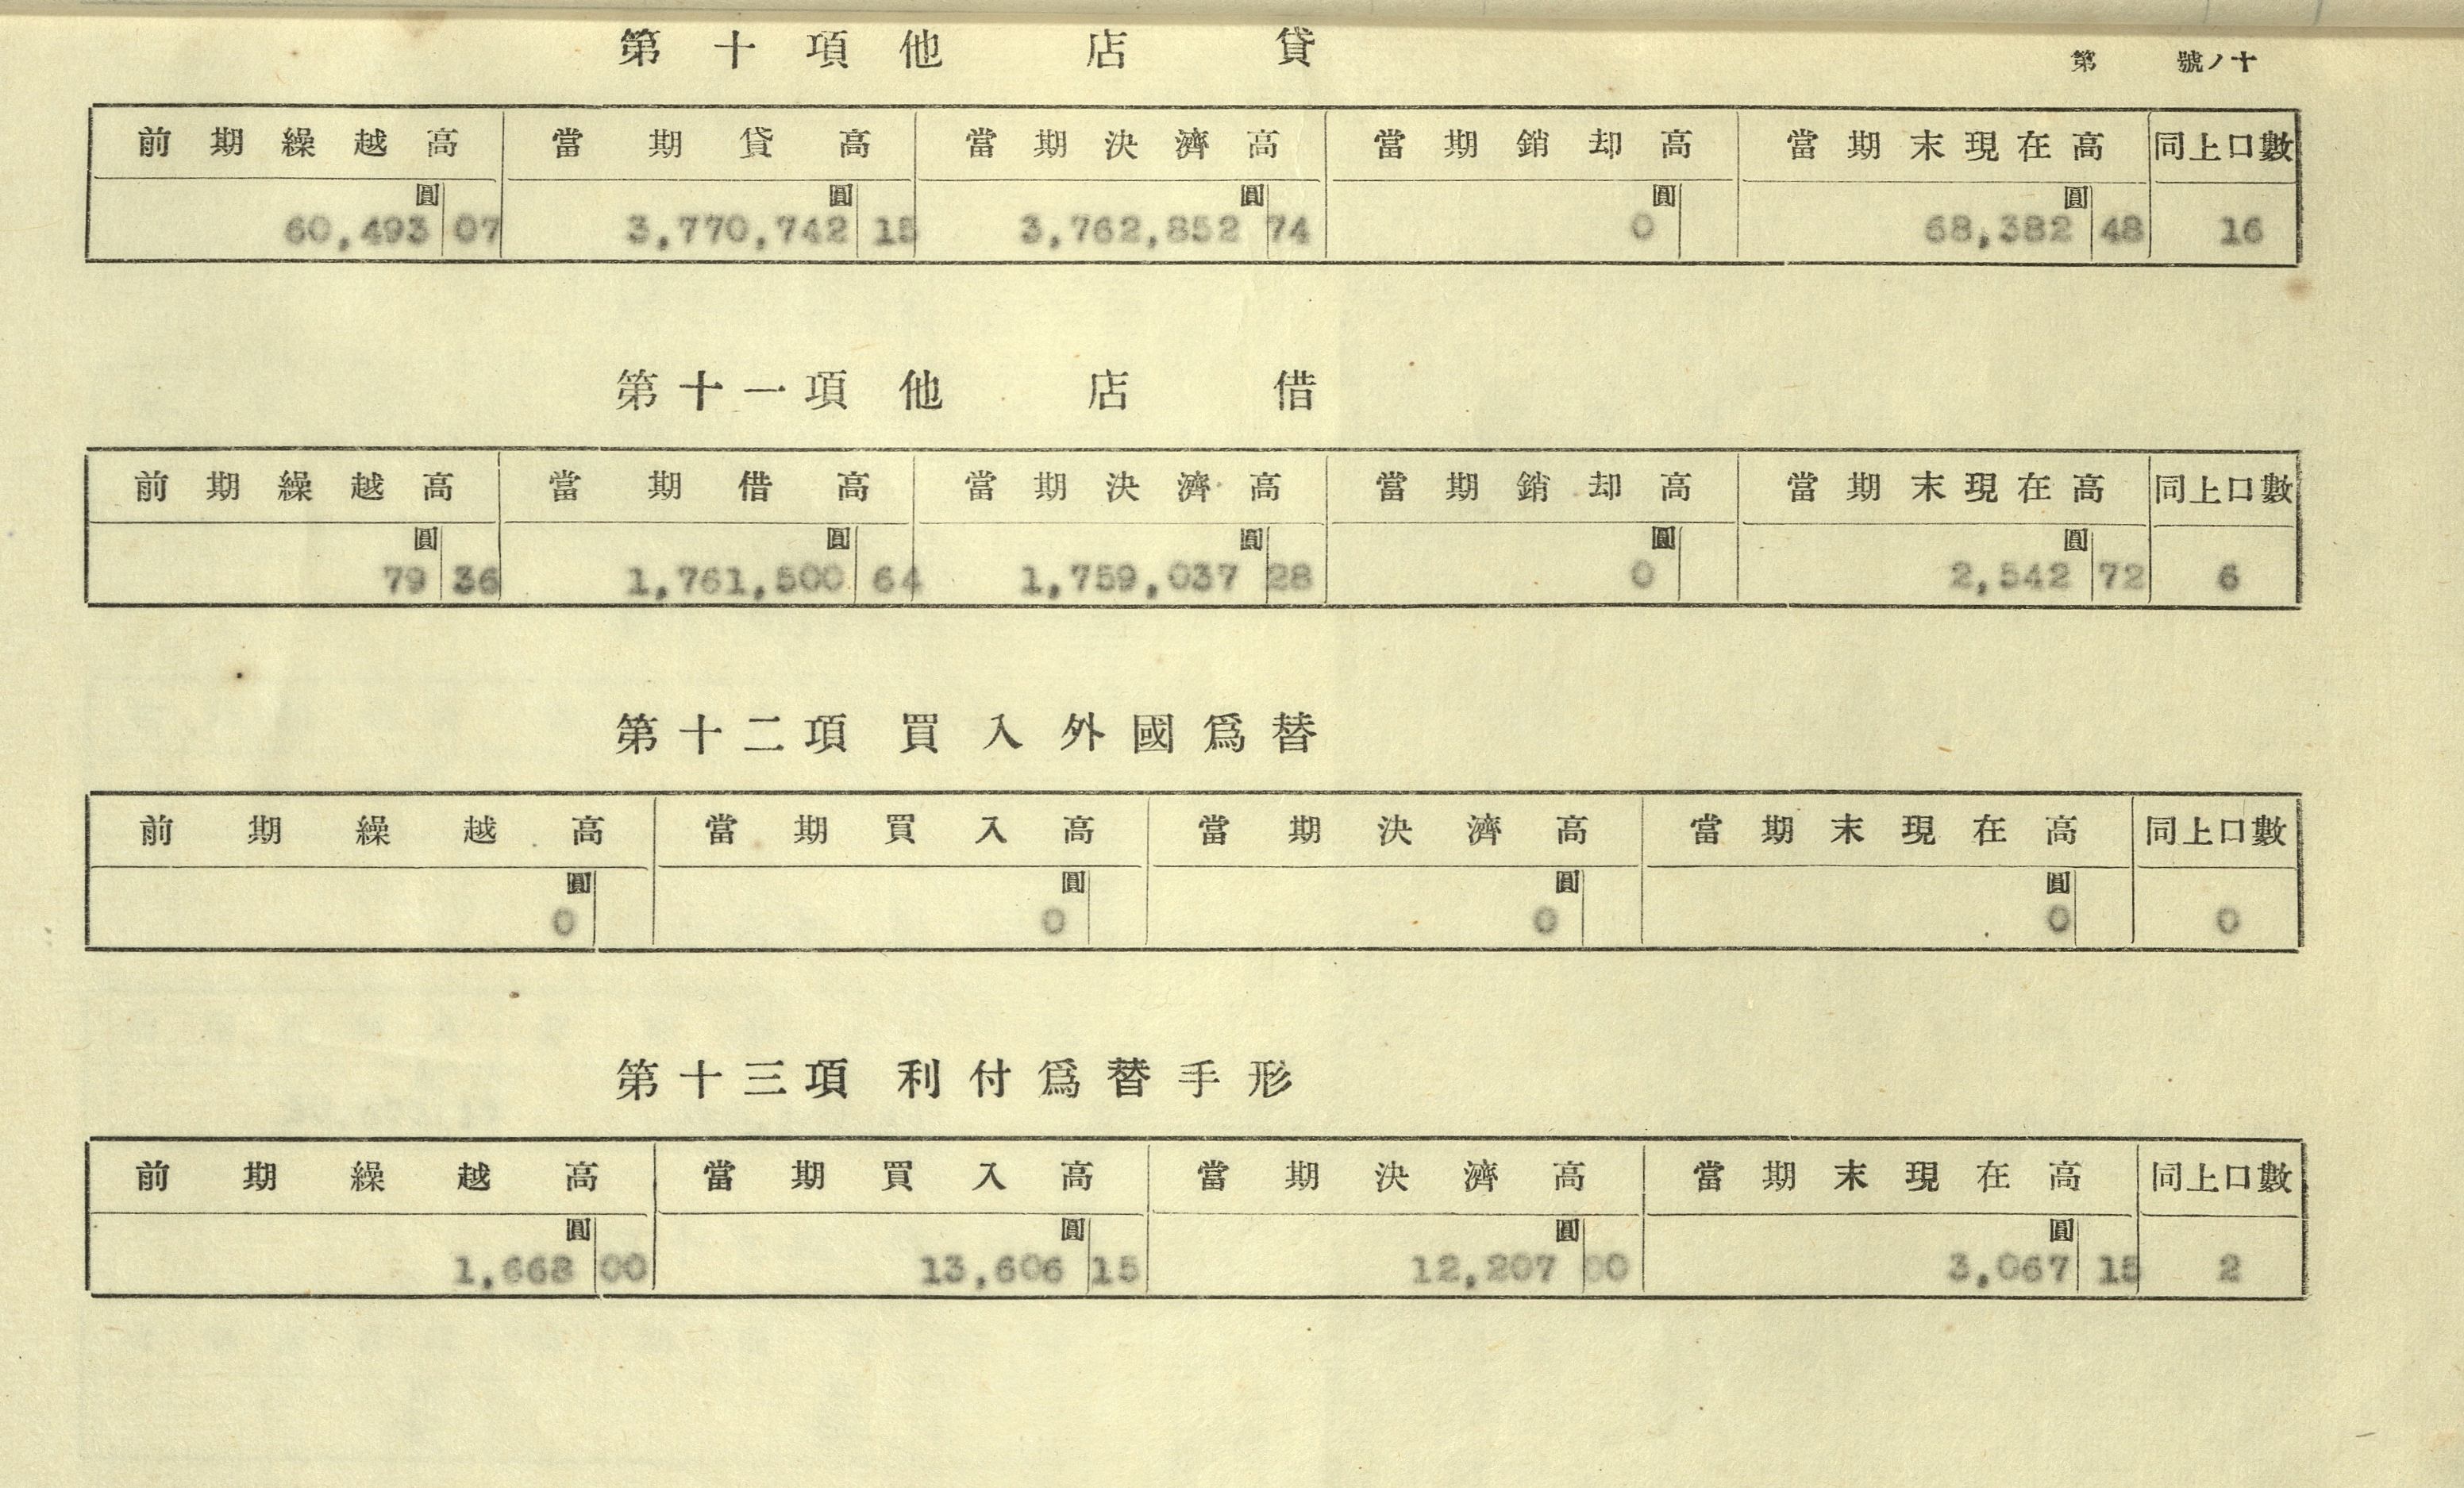 第十項 他店貸
第 號ノ十
前期繰越高 當期貸高 當期決濟高 當期銷却高 當期末現在高 同上口數
圓 圓 圓 圓 圓
60,493 07 3,770,742 15 3,762,852 74 0 68,382 48 16
第十一項 他店借
前期繰越高 當期借高 當期決濟高 當期銷却高 當期末現在高 同上口數
圓 圓 圓 圓 圓
79 36 1,761,500 64 1,759,037 28 0 2,542 72 6
第十二項 買入外國爲替
前期繰越高 當期買入高 當期決濟高 當期末現在高 同上口數
圓 圓 圓 圓
0 0 0 0 0
第十三項 利付爲替手形
前期繰越高 當期買入高 當期決濟高 當期末現在高 同上口數
圓 圓 圓 圓
1,668 00 13,606 15 12,207 00 3,067 15 2